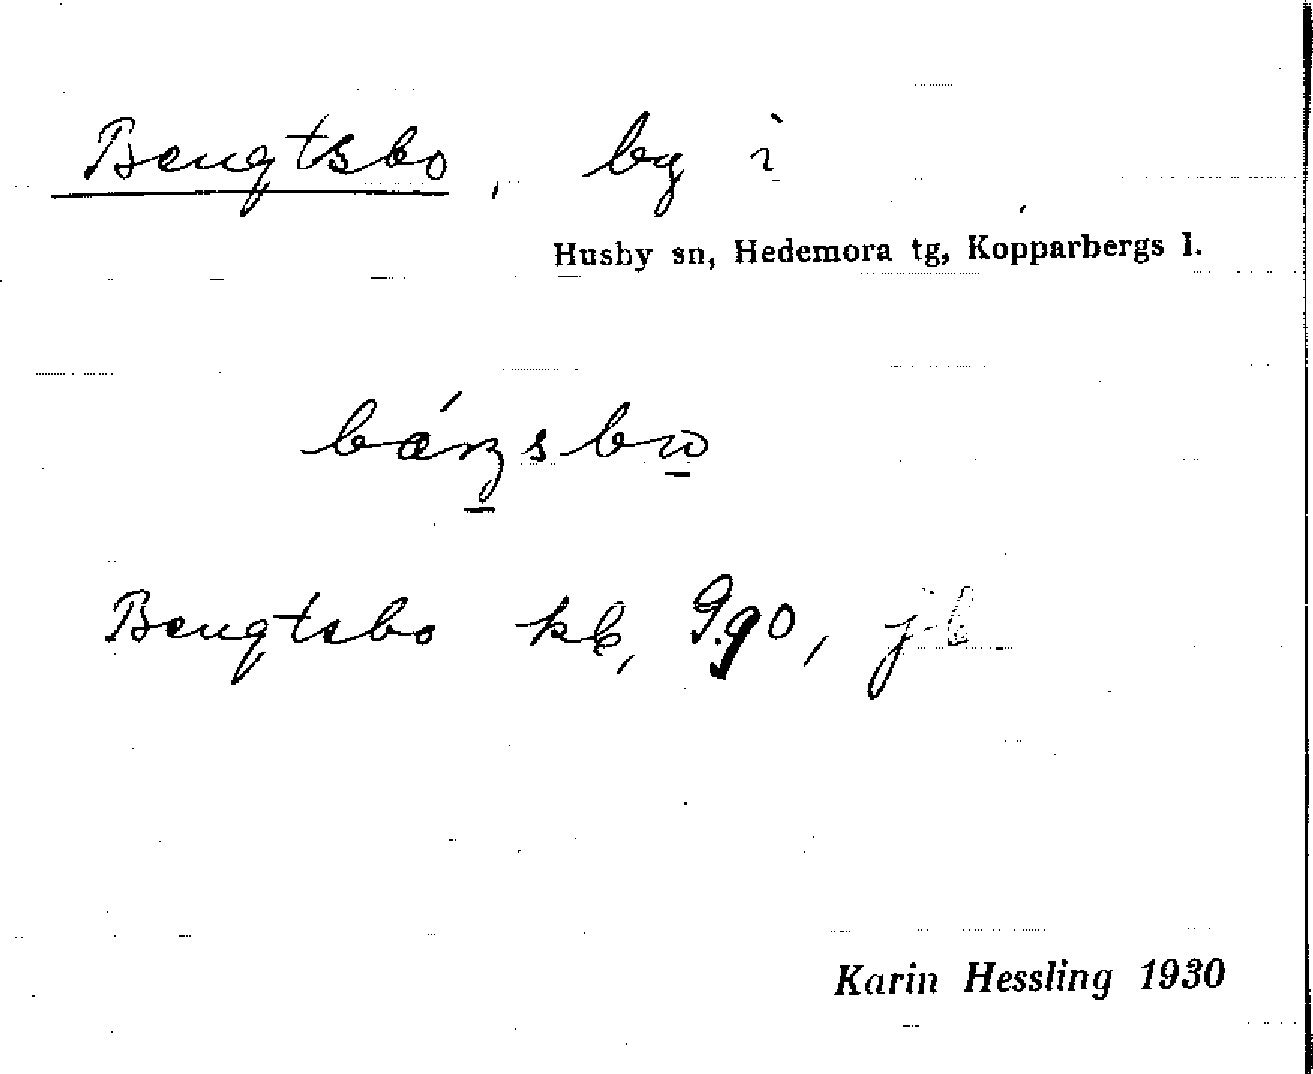 Bengtsbo, by i
Husby sn, Hedemora tg, Kopparbergs l.
Bengtsbo kb, G.qo, jb
Karin Hessling 1930